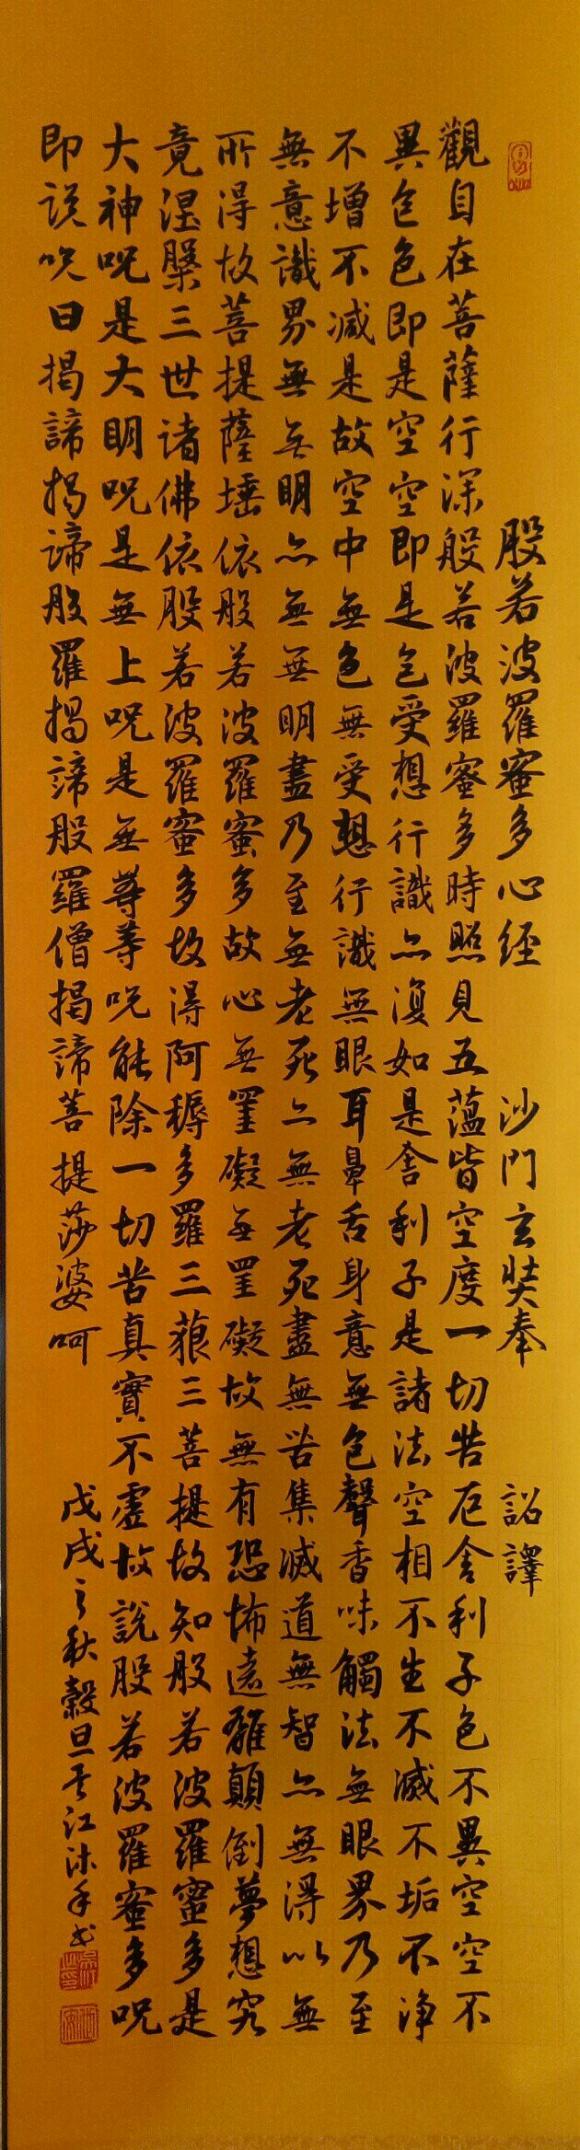 般若波羅蜜多心經 沙門玄奘奉 詔譯
觀自在菩薩行深般若波羅蜜多時照見五蘊皆空度一切苦厄舍利子色不異空空不
異色色即是空空即是色受想行識亦復如是舍利子是諸法空相不生不滅不垢不淨
不增不減是故空中無色無受想行識無眼耳鼻舌身意無色聲香味觸法無眼界乃至
無意識界無無明亦無無明盡乃至無老死亦無老死盡無苦集滅道無智亦無得以無
所得故菩提薩埵依般若波羅蜜多故心無罣礙無罣礙故無有恐怖遠離顛倒夢想究
竟涅槃三世諸佛依般若波羅蜜多故得阿耨多羅三藐三菩提故知般若波羅蜜多是
大神呪是大明呪是無上呪是無等等呪能除一切苦真實不虛故說般若波羅蜜多呪
即說呪曰揭諦揭諦般羅揭諦般羅僧揭諦菩提莎婆呵
戊戌之秋穀旦江沐手書